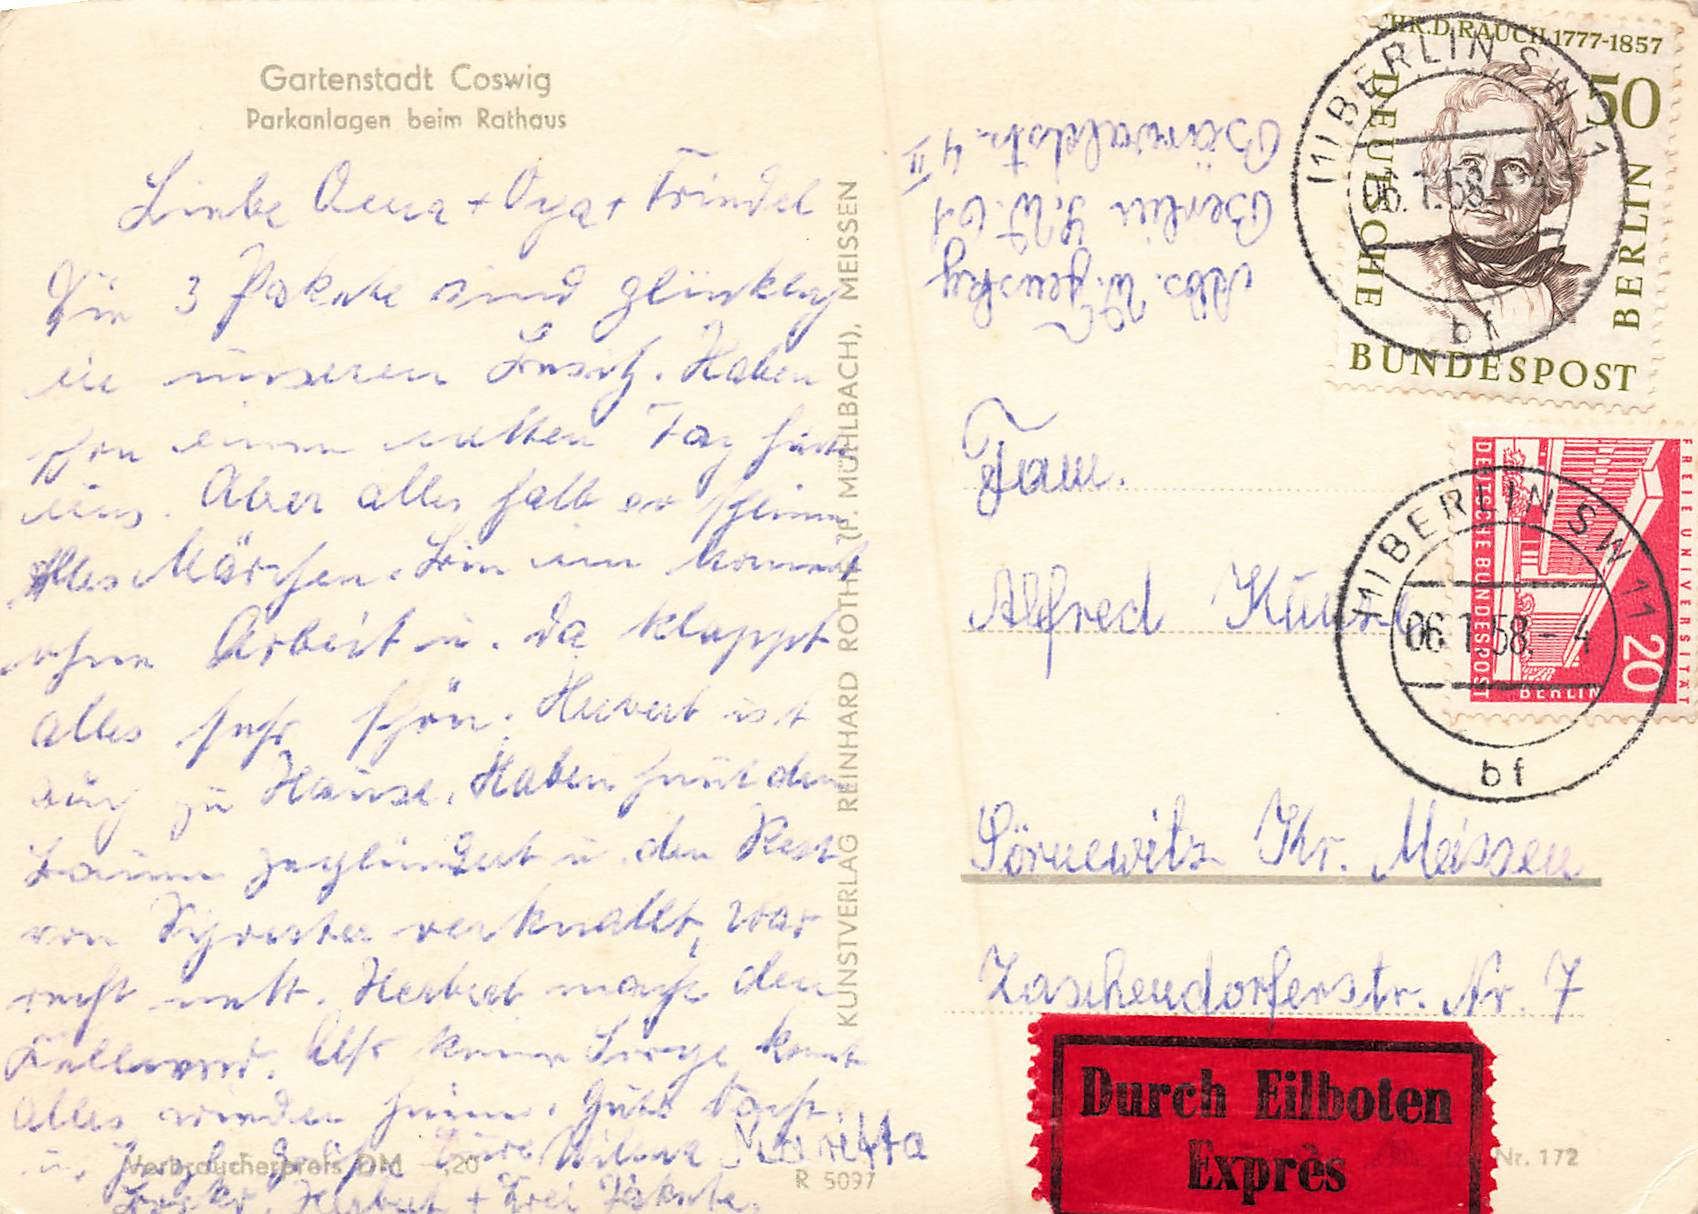 Gartenstadt Coswig
Parkanlagen beim Rathaus
Liebe Oma + Opa + Friedel
Die 3 Pakete sind glücklich
in unseren Besitz. Haben
von einen Tag
uns. Aber alles halb so schlimm
alles Märchen.
ohne Arbeit u. da klappt
alles sehr schön. Hubert ist
auch zu Hause. Haben heut den
Baum geplündert u. den Rest
von Sylvester verknallt, war
recht nett. Herbert macht den
Also keine Sorge
alles wieder heim. Gute Nacht
u. herzl. Grüße Eure Maritta
Herbert + Drei Pakete.
Verbraucherpreis DM -,20
R 5097
KUNSTVERLAG REINHARD ROTHE (P. MÜHLBACH), MEISSEN
Abs. W.
Berlin S.W. 61
Bärwaldstr. 4 II
Fam.
Alfred
Sörnewitz Kr. Meissen
Zaschendorferstr. Nr. 7
CHR. D. RAUCH 1777-1857
50
DEUTSCHE
BUNDESPOST
BERLIN
(1) BERLIN SW 11
06.1.58.-4
bf
FREIE UNIVERSITÄT
DEUTSCHE BUNDESPOST
BERLIN
20
(1) BERLIN SW 11
06.1.58.-4
bf
Durch Eilboten
Exprès
Nr. 172